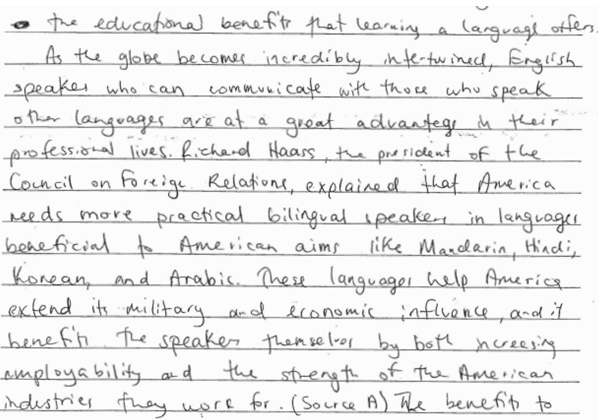 the educational benefits that learning a language offers.
As the globe becomes incredibly intertwined, English
speakers who can communicate with those who speak
other languages are at a great advantage in their
professional lives. Richard Haass, the president of the
Council on Foreign Relations, explained that America
needs more practical bilingual speakers in languages
beneficial to American aims like Mandarin, Hindi,
Korean, and Arabic. These languages help America
extend its military and economic influence, and it
benefits the speakers themselves by both increasing
employability and the strength of the American
industries they work for. (Source A) The benefit to